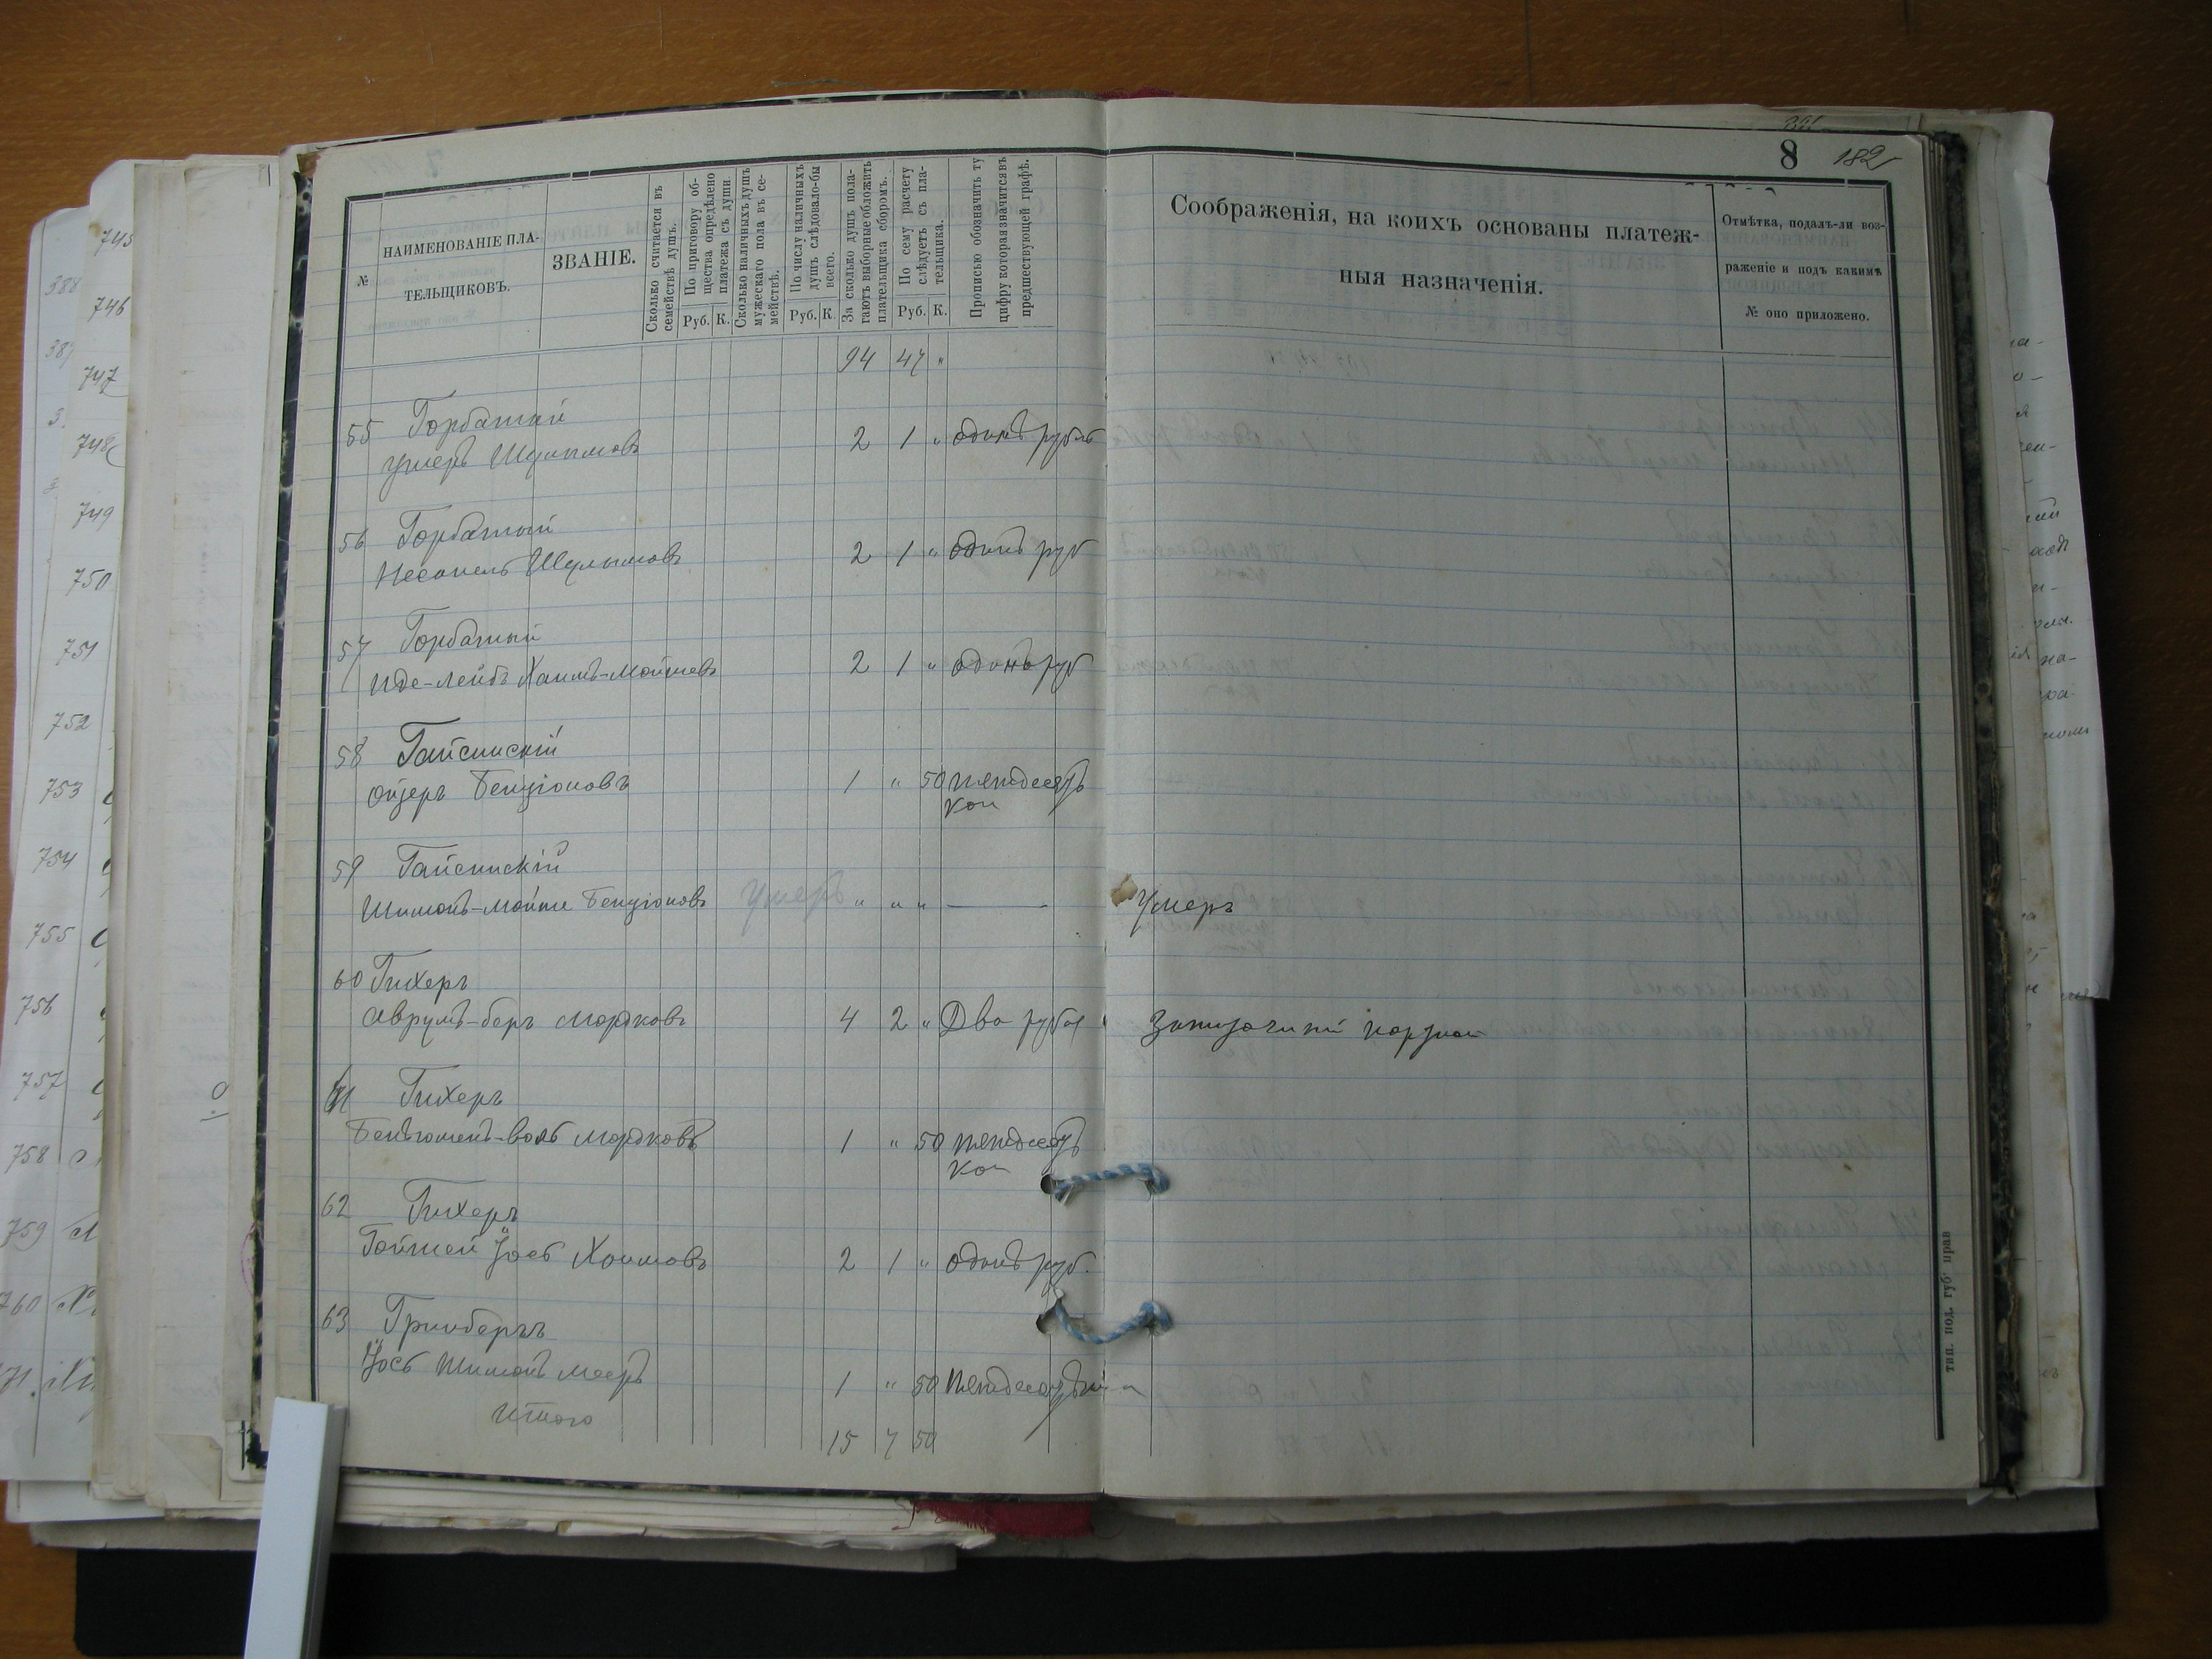 8 182
№
НАИМЕНОВАНІЕ ПЛА-
ТЕЛЬЩИКОВЪ.
ЗВАНІЕ.
Сколько считается въ
семействѣ душъ.
По приговору об-
щества опредѣлено
платежа съ души.
Руб. К.
Сколько наличныхъ душъ
мужескаго пола въ се-
мействѣ.
По числу наличныхъ
душъ слѣдовало-бы
всего.
Руб. К.
За сколько душъ пола-
гаютъ выборные обложить
плательщика сборомъ.
По сему расчету
слѣдуетъ съ пла-
тельщика.
Руб. К.
Прописью обозначить ту
цифру которая значится въ
предшествующей графѣ.
Соображенія, на коихъ основаны платеж-
ныя назначенія.
Отмѣтка, подалъ-ли воз-
раженіе и подъ какимъ
№ оно приложено.
94 47 "
55 Горбатый
Ушеръ Шулымовъ 2 1 " одинъ рубль
56 Горбатый
Шулымовъ 2 1 " одинъ руб
57 Горбатый
Иде-Лейбъ Хаимъ-Мошковъ 2 1 " одинъ руб
58 Гайсинскій
Ойзеръ Бенціоновъ 1 " 50 пятдесятъ
коп
59 Гайсинскій
Шимонъ-Мойше Бенціоновъ умеръ " " " — Умеръ
60 Гихеръ
Аврумъ-Беръ Мордковъ 4 2 " Два рубля
61 Гихеръ
Мордковъ 1 " 50 пятдесятъ
коп
62 Гихеръ
Іось Хаимовъ 2 1 " одинъ руб.
63 Гринбергъ
Іось Шимонъ Мееръ 1 " 50 пятдесятъ
Итого
15 7 50
тип. под. губ. прав
745
746
747
748
749
750
751
752
753
754
755
756
757
758
759
760